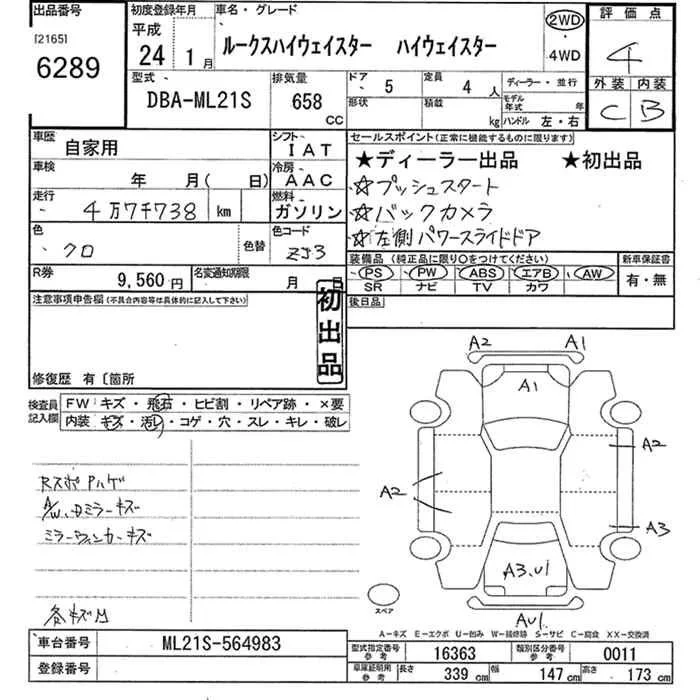 出品番号
[2165]
6289
初度登録年月
平成
24 1月
車名・グレード
ルークスハイウェイスター ハイウェイスター
2WD
・
4WD
評価点
4
外装 内装
C B
型式
DBA-ML21S
排気量
658
CC
ドア 5
定員 4 人
形状
積載 kg
ディーラー・並行
モデル年式 年
ハンドル 左・右
車歴
自家用
シフト
IAT
車検
年 月( 日)
冷房
AAC
走行
4万7千738 km
燃料
ガソリン
色
クロ
色替
色コード
ZJ3
セールスポイント(正常に機能するものに限ります)
★ディーラー出品 ★初出品
☆プッシュスタート
☆バックカメラ
☆左側パワースライドドア
装備品(純正品に限り○をつけてください)
PS PW ABS エアB AW
SR ナビ TV カワ
新車保証書
有・無
R券
9,560 円
名変通知期限
月 日
後日品
注意事項申告欄(不具合内容等は具体的に記入して下さい)
初出品
修復歴 有〔箇所
検査員記入欄
FW キズ・飛石・ヒビ割・リペア跡・×要
内装 キズ・汚レ・コゲ・穴・スレ・キレ・破レ
RスポPハゲ
A/W、Dミラーキズ
ミラーウィンカーキズ
各キズM
A2 A1
A1
A2
A2
A3
A3.U1
AU1
スペア
A-キズ E-エクボ U-凹み W-補修跡 S-サビ C-腐食 XX-交換済
車台番号
ML21S-564983
登録番号
型式指定番号参考
16363
類別区分番号参考
0011
車庫証明用参考
長さ 339 cm 幅 147 cm 高さ 173 cm